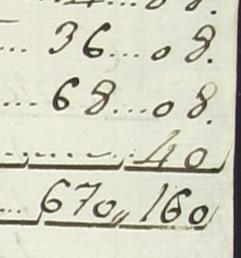 ... 36...08.
... 68...08.
40
... 670,,160